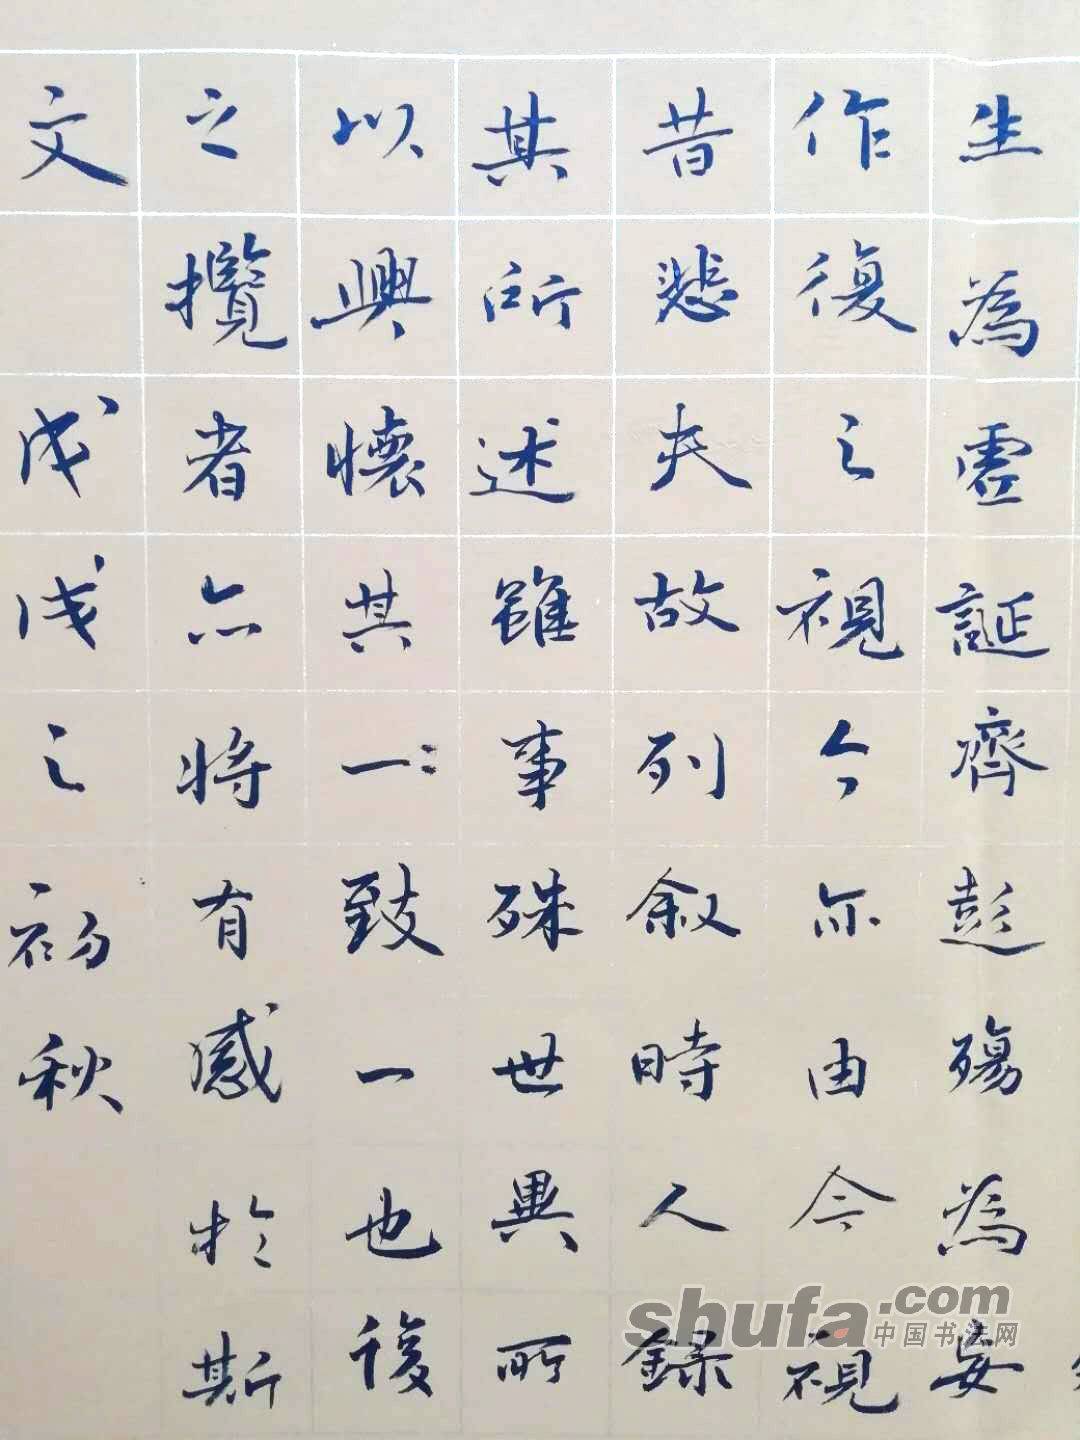 生為虛誕齊彭殤為妄
作後之視今亦由今視
昔悲夫故列叙時人錄
其所述雖事殊世異所
以興懷其一:致一也後
之攬者亦將有感於斯
文 戊戌之初秋
shufa.com
中国书法网